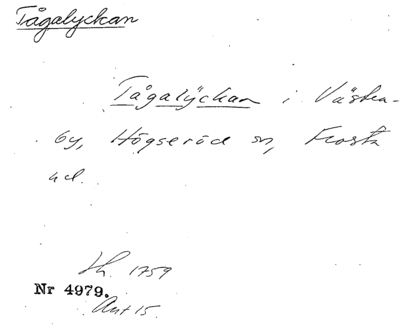 Tågalyckan
Tågalyckan i Västra-
by, Högseröd sn, Frosta
hd.
Lh. 1759
Nr 4979.
Ant 15.